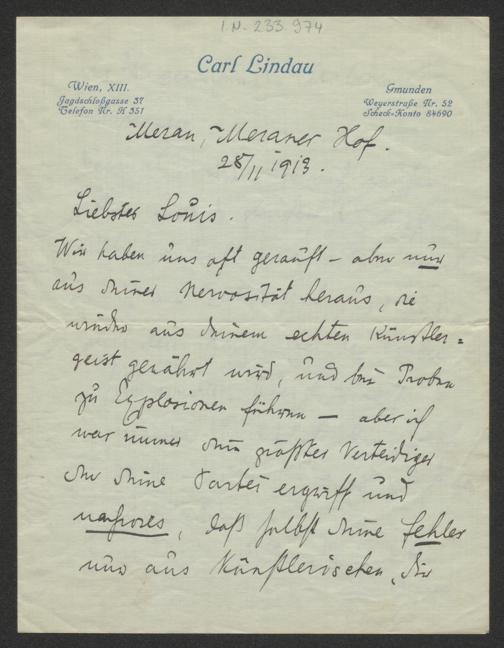 I.N. 233.974
Carl Lindau
Wien, XIII.
Jagdschloßgasse 37
Telefon Nr. H 351
Gmunden
Weyerstraße Nr. 52
Scheck-Konto 84690
Meran, Meraner Hof.
28/II 1913.
Liebster Louis.
Wir haben uns oft gerauft – aber nur
aus Deiner Nervosität heraus, die
wieder aus Deinem echten Künstler=
geist genährt wird, und bei Proben
zu Explosionen führen – aber ich
war immer Dein größter Verteidiger
der Deine Partei ergriff und
, daß selbst Deine Fehler
nur aus Künstlerischen, Dir